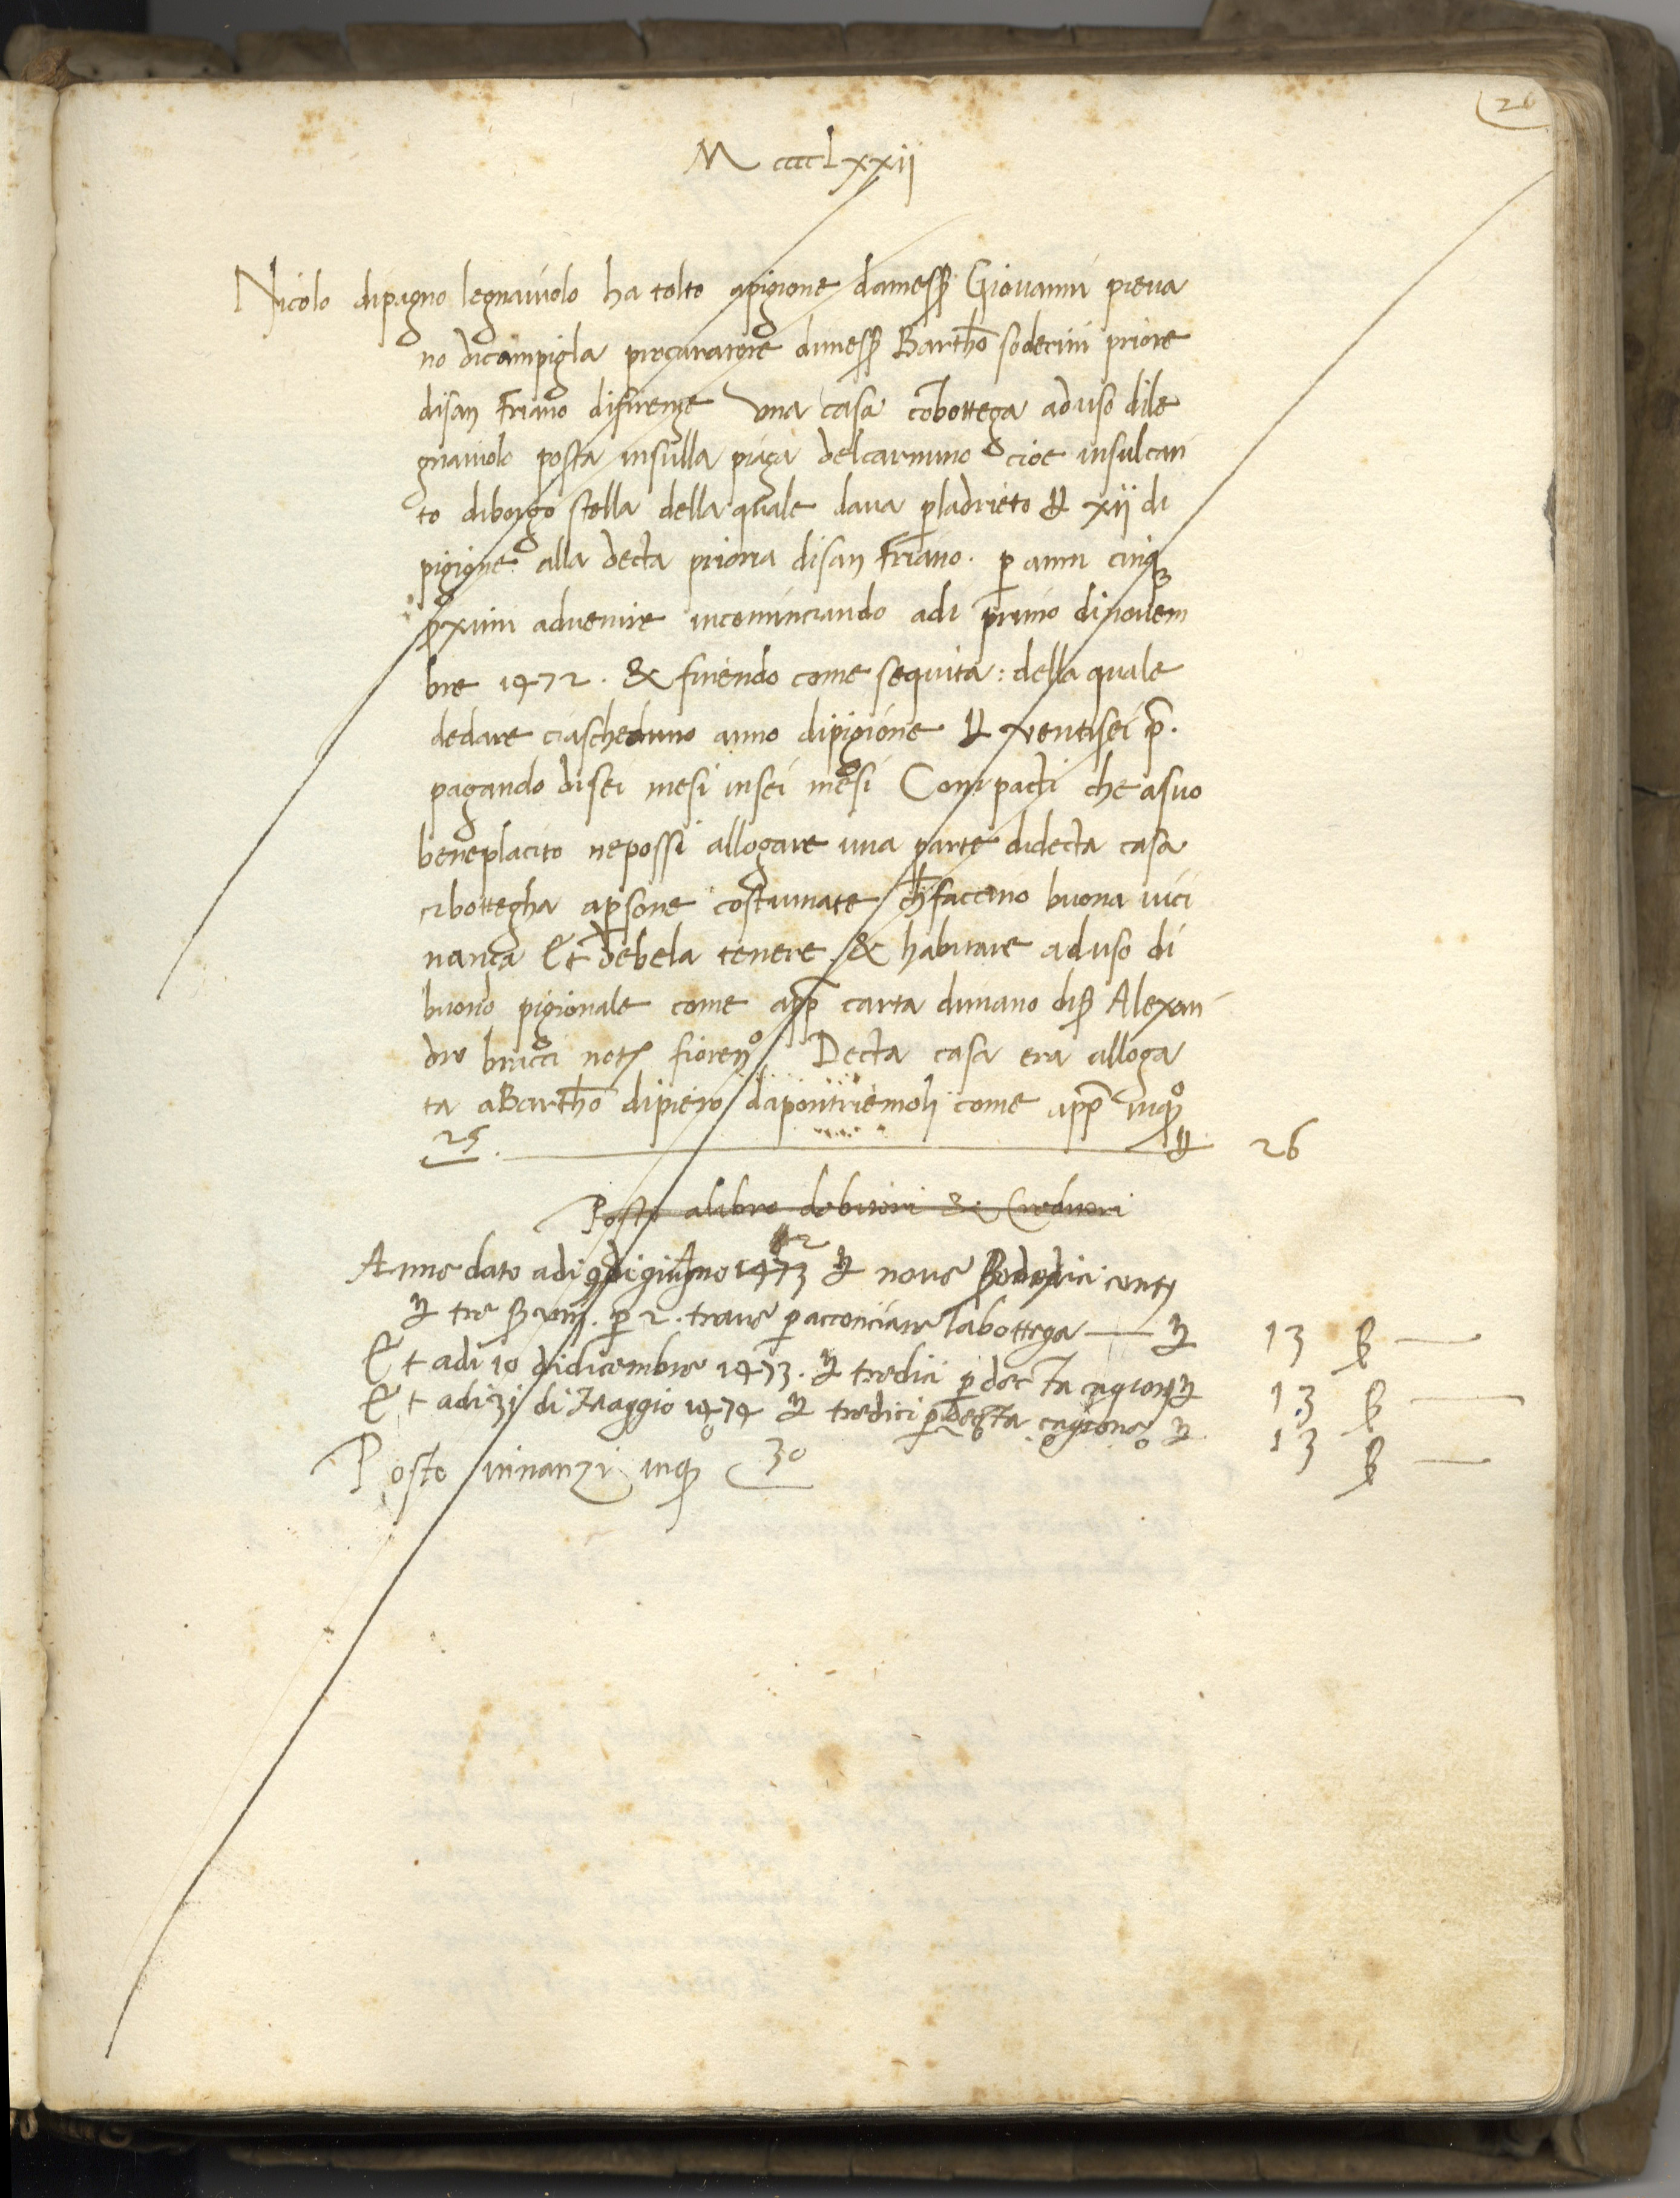 26
MccccLxxii
Nicolo dipagno legnaiuolo ha tolto apigione damesß Giouanni pieua
no dicampigla procuratore dimesß Bartho soderini priore
disan Friano difirenze vna casa cobottega aduso dile
gnaiuolo posta insulla piaza delcarmino cioe insulcan
to diborgo stella della quale daua pladrieto xii di
pigione alla decta prioria disan Friano. p anni cinq
pxximi aduenire incominciando adi primo dinouem
bre 1472. & finendo come seguita: della quale
dedare ciascheduno anno dipigione ventisei p.
pagando disei mesi insei mesi Con pacti che asuo
beneplacito nepossi allogare una parte didecta casa
ebottegha apsone costumate ch faccino buona uici
nanza Et debela tenere & habitare aduso di
buono pigionale come app carta dimano diß Alexan
dro bracci not fioreno Decta casa era alloga
ta aBartho dipiero dapontriemoli come app inqo
25 26
Posto alibro debitori & Creditori
Anne dato adi 9 digiugno 1473 noue ß dodici cont
tre ß viii. p 2. traue p acconciare labottega 13 ß
Et adi 10 didicembre 1473. tredici p decta cagione 13 ß
Et adi 31 di Maggio 1474 tredici p decta cagione 13 ß
Posto innanzi inqo 30